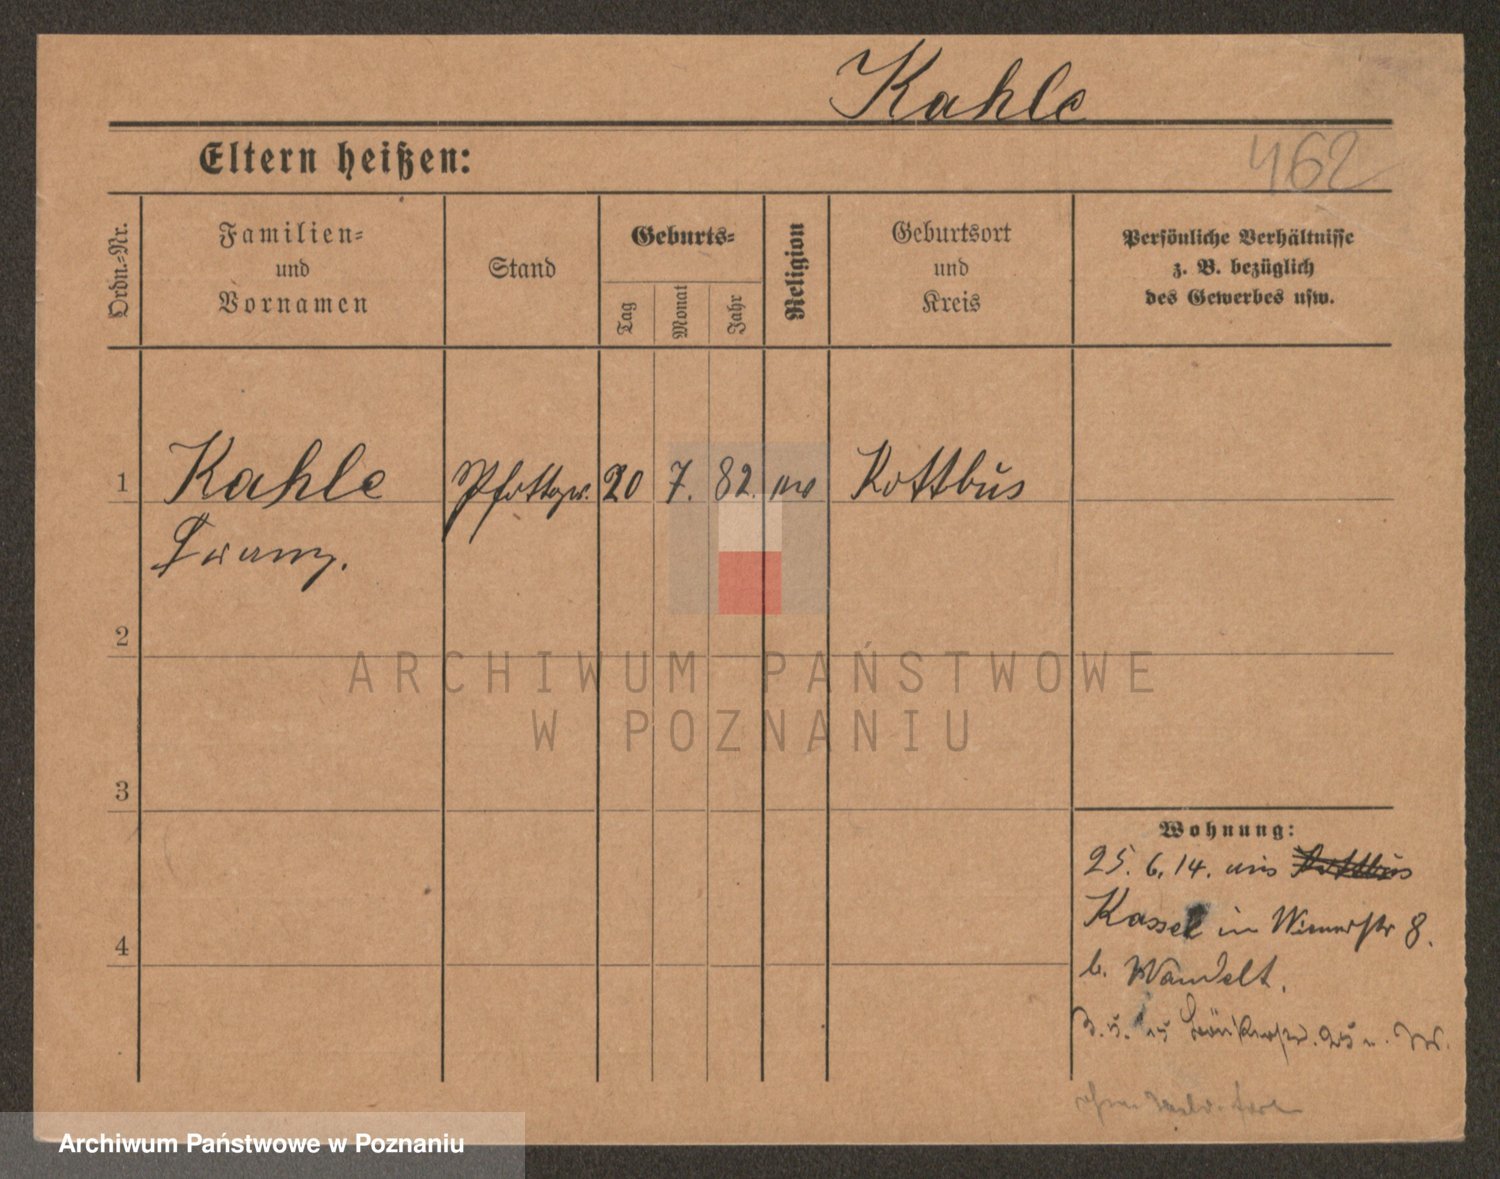 Kahle
Eltern heißen:
462
Ordn.-Nr.
Familien-
und
Vornamen
Stand
Geburts-
Tag
Monat
Jahr
Religion
Geburtsort
und
Kreis
Persönliche Verhältnisse
z. B. bezüglich
des Gewerbes usw.
1 Kahle 20 7. 82. Kottbus
Franz.
2
ARCHIWUM PAŃSTWOWE
W POZNANIU
3
Wohnung:
25. 6. 14. aus Kottbus
Kassel in Wienerstr 8.
4
b. Wandelt.
Archiwum Państwowe w Poznaniu